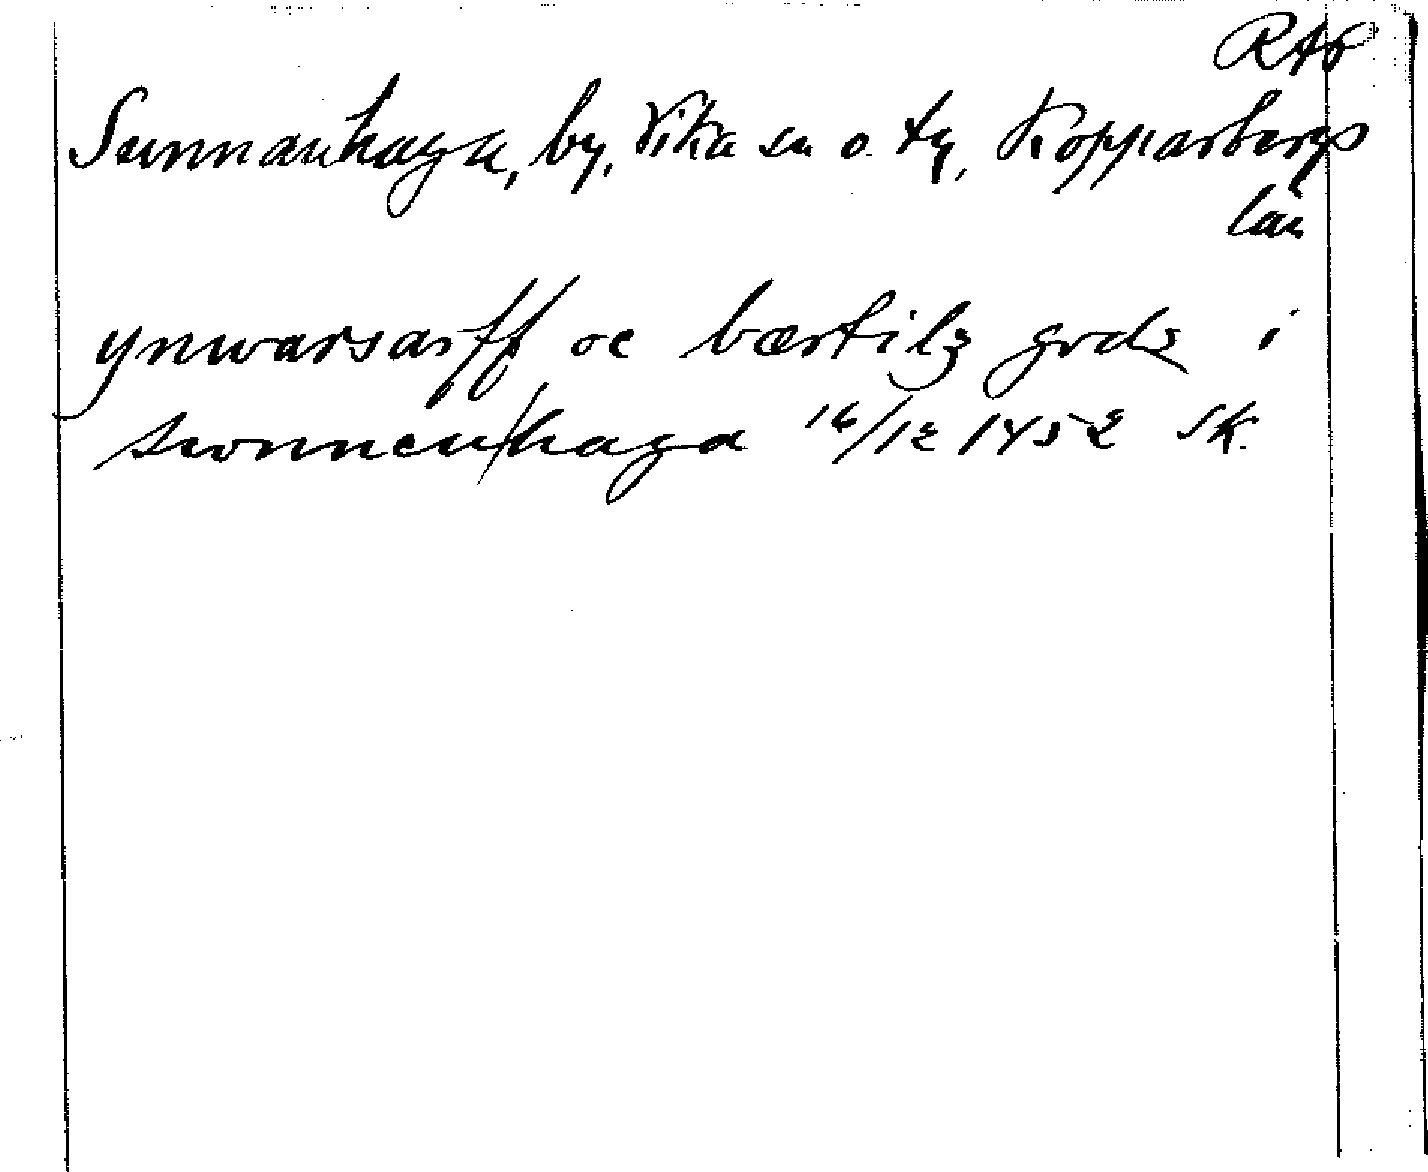 RAp
Sunnanhaga, by, Vika sn o. tg, Kopparbergs
län
ynwarsarff oc bærtilz godz i
swnnen/haga 16/12 1452 SK.